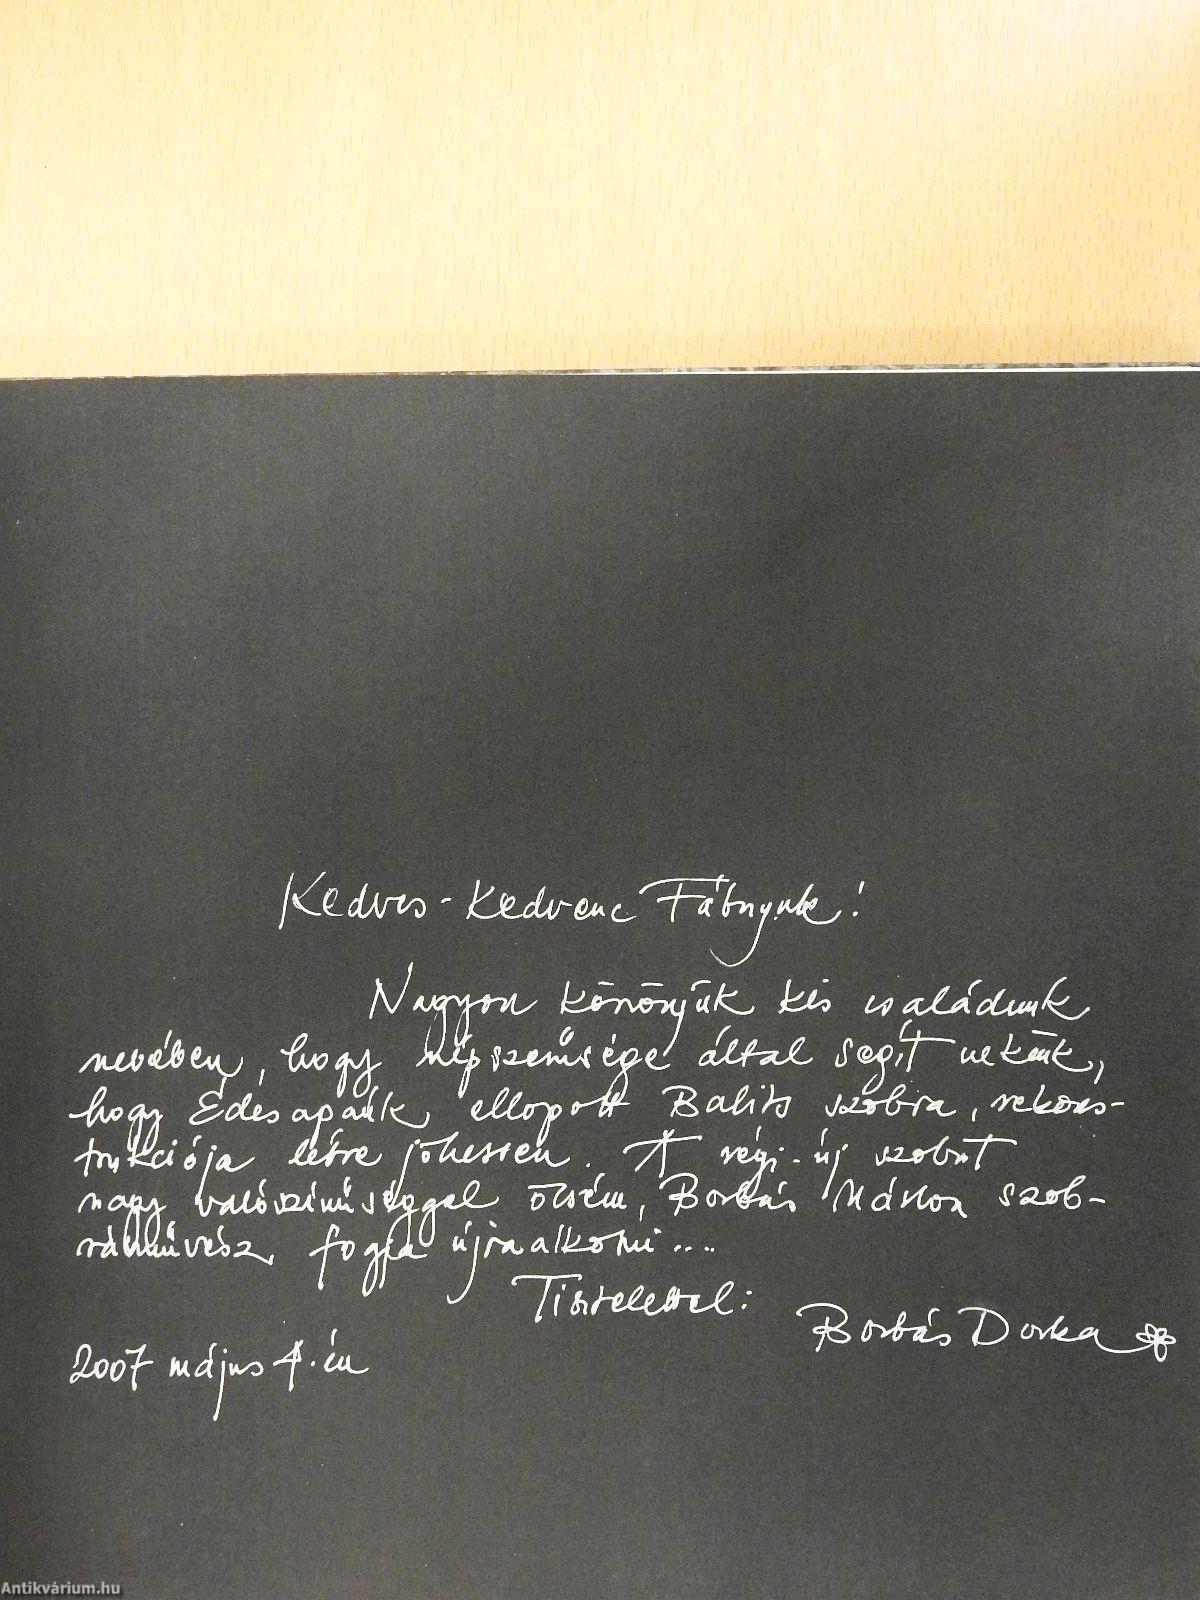 Kedves-Kedvenc Fábnyunk!
Nagyon köszönjük kis családunk
nevében, hogy népszerűsége által segít nekünk,
hogy Édesapánk, ellopott szobra, rekons-
trukciója létre jöhessen. A régi-új szobrot
nagy valószínűséggel öcsém, Borbás Márton szob-
rászművész, fogja újraalkotni....
Tisztelettel:
Borbás Dorka
2007 május 4.-én
Antikvárium.hu